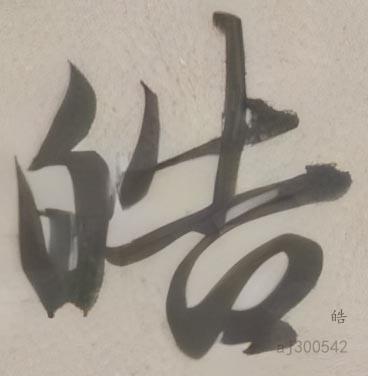 皓
皓
aj300542